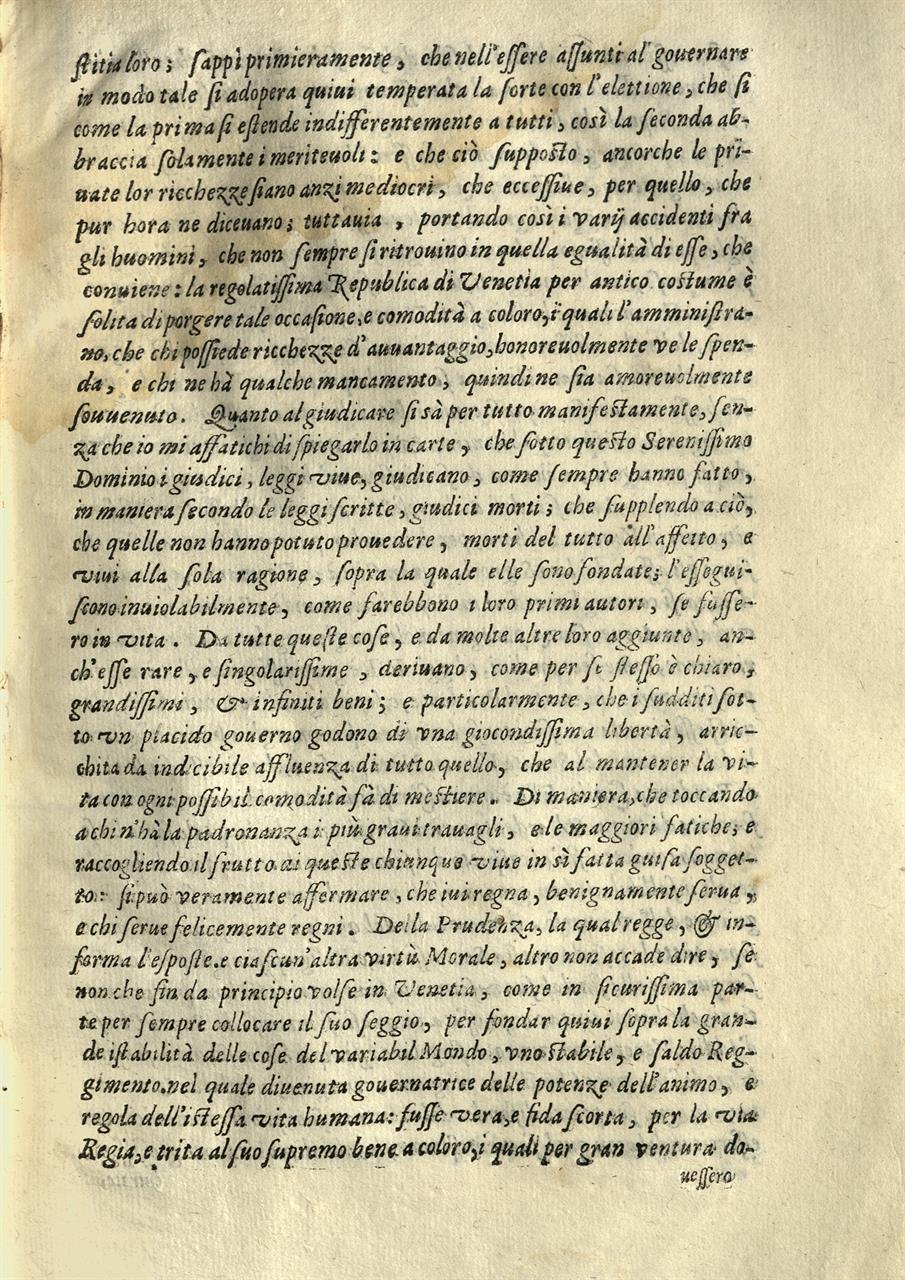 ſtitia loro; ſappi primieramente, che nell'eſſere aſſunti al gouernare
in modo tale ſi adopera quiui temperata la ſorte con l'elettione, che ſi
come la prima ſi eſtende indifferentemente a tutti, così la ſeconda ab-
braccia ſolamente i meriteuoli: e che ciò ſuppoſto, ancorche le pri-
uate lor ricchezze ſiano anzi mediocri, che ecceſſiue, per quello, che
pur hora ne diceuano; tuttauia, portando così i varij accidenti fra
gli huomini, che non ſempre ſi ritrouino in quella egualità di eſſe, che
conuiene: la regolatiſſima Republica di Venetia per antico coſtume è
ſolita di porgere tale occaſione, e comodità a coloro, i quali l'amminiſtra-
no, che chi poſſiede ricchezze d'auuantaggio, honoreuolmente ve le ſpen-
da, e chi ne hà qualche mancamento, quindi ne ſia amoreuolmente
ſouuenuto. Quanto al giudicare ſi sà per tutto manifeſtamente, ſen-
za che io mi affatichi di ſpiegarlo in carte, che ſotto queſto Sereniſſimo
Dominio i giudici, leggi viue, giudicano, come ſempre hanno fatto,
in maniera ſecondo le leggi ſcritte, giudici morti; che ſupplendo a ciò,
che quelle non hanno potuto prouedere, morti del tutto all'affetto, e
viui alla ſola ragione, ſopra la quale elle ſono fondate; l'eſſegui-
ſcono inuiolabilmente, come farebbono i loro primi autori, ſe fuſſe-
ro in vita. Da tutte queſte coſe, e da molte altre loro aggiunte, an-
ch'eſſe rare, e ſingolariſſime, deriuano, come per ſe ſteſſo è chiaro,
grandiſſimi, & infiniti beni; e particolarmente, che i ſudditi ſot-
to vn placido gouerno godono di vna giocondiſſima libertà, arric-
chita da indicibile affluenza di tutto quello, che al mantener la vi-
ta con ogni poſſibil comodità fà di meſtiere. Di maniera, che toccando
a chi n'hà la padronanza i più graui trauagli, e le maggiori fatiche; e
raccogliendo il frutto di queſte chiunque viue in sì fatta guiſa ſogget-
to: ſi può veramente affermare, che iui regna, benignamente ſerua,
e chi ſerue felicemente regni. Della Prudenza, la qual regge, & in-
forma l'eſpoſte, e ciaſcun'altra virtù Morale, altro non accade dire, ſe
non che fin da principio volſe in Venetia, come in ſicuriſſima par-
te per ſempre collocare il ſuo ſeggio, per fondar quiui ſopra la gran-
de iſtabilità delle coſe del variabil Mondo, vno ſtabile, e ſaldo Reg-
gimento, nel quale diuenuta gouernatrice delle potenze dell'animo, e
regola dell'iſteſſa vita humana: fuſſe vera, e fida ſcorta, per la via
Regia, e trita al ſuo ſupremo bene a coloro, i quali per gran ventura do-
ueſſero